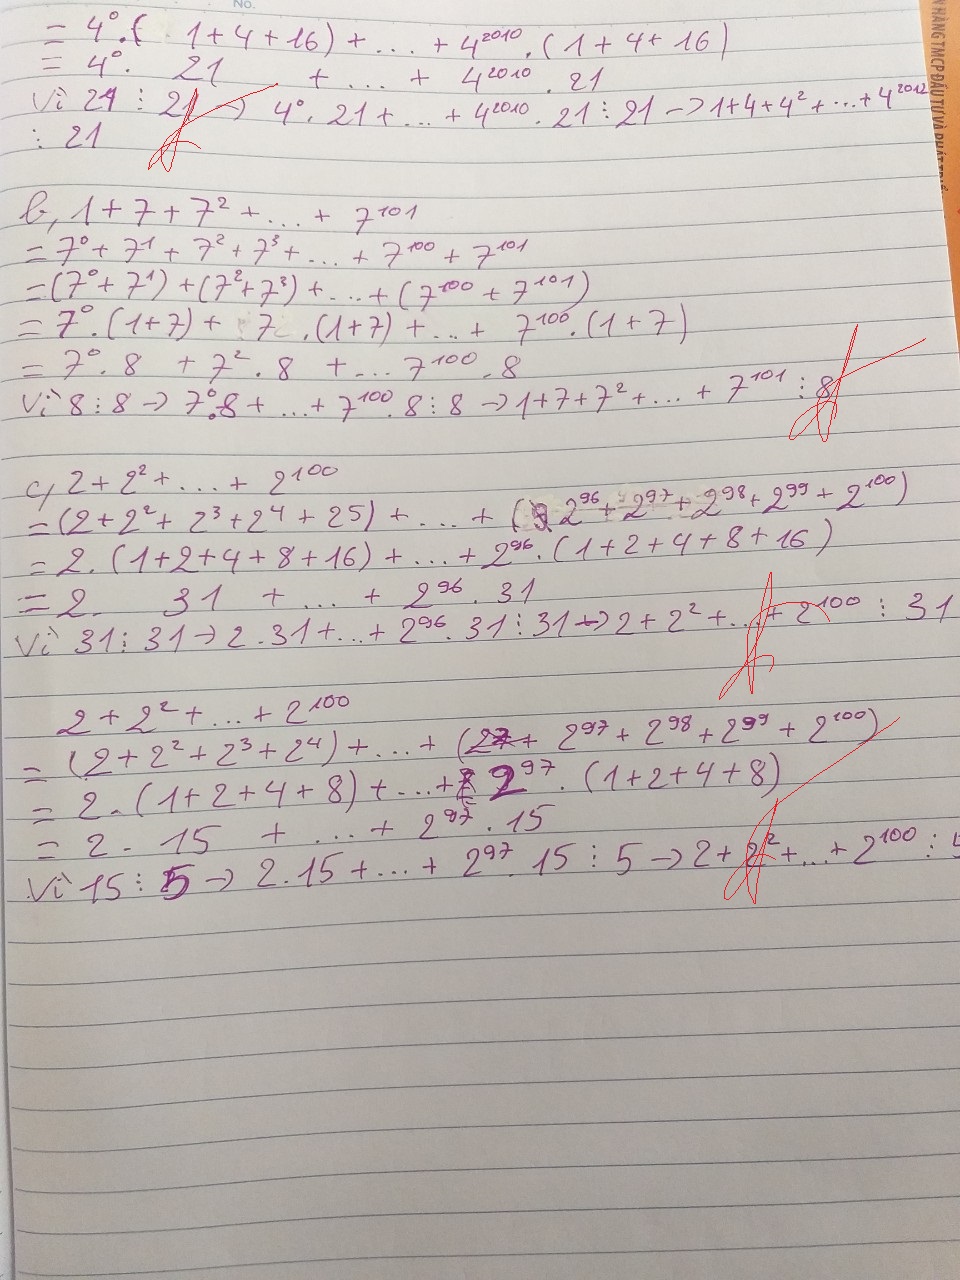 No.
= 4⁰.( 1+4+16) + ... + 4²⁰¹⁰.(1+4+16)
= 4⁰. 21 + ... + 4²⁰¹⁰.21
Vì 21 ⋮ 21 → 4⁰.21+...+4²⁰¹⁰.21⋮21→1+4+4²+...+4²⁰¹²
⋮ 21
b, 1+7+7²+...+ 7¹⁰¹
=7⁰+7¹+7²+7³+...+7¹⁰⁰+7¹⁰¹
=(7⁰+7¹)+(7²+7³)+...+(7¹⁰⁰+7¹⁰¹)
= 7⁰.(1+7)+ 7 .(1+7)+...+ 7¹⁰⁰.(1+7)
= 7⁰.8 +7².8 +...7¹⁰⁰.8
Vì 8⋮8→7⁰.8+...+7¹⁰⁰.8⋮8→1+7+7²+...+7¹⁰¹⋮8
c, 2+2²+...+ 2¹⁰⁰
=(2+2²+2³+2⁴+25)+...+( 2⁹⁶+2⁹⁷+2⁹⁸+2⁹⁹+2¹⁰⁰)
=2.(1+2+4+8+16)+...+2⁹⁶.(1+2+4+8+16)
=2. 31 +...+ 2⁹⁶.31
Vì 31⋮31→2.31+...+2⁹⁶.31⋮31→2+2²+...+2¹⁰⁰⋮31
2+2²+...+2¹⁰⁰
= (2+2²+2³+2⁴)+...+( 2⁹⁷+2⁹⁸+2⁹⁹+2¹⁰⁰)
= 2.(1+2+4+8)+...+ 2⁹⁷.(1+2+4+8)
= 2. 15 +...+ 2⁹⁷.15
Vì 15⋮5→2.15+...+ 2⁹⁷.15⋮5→2+2²+...+2¹⁰⁰⋮5
N HÀNG TMCP ĐẦU TƯ VÀ PHÁT TRIỂ